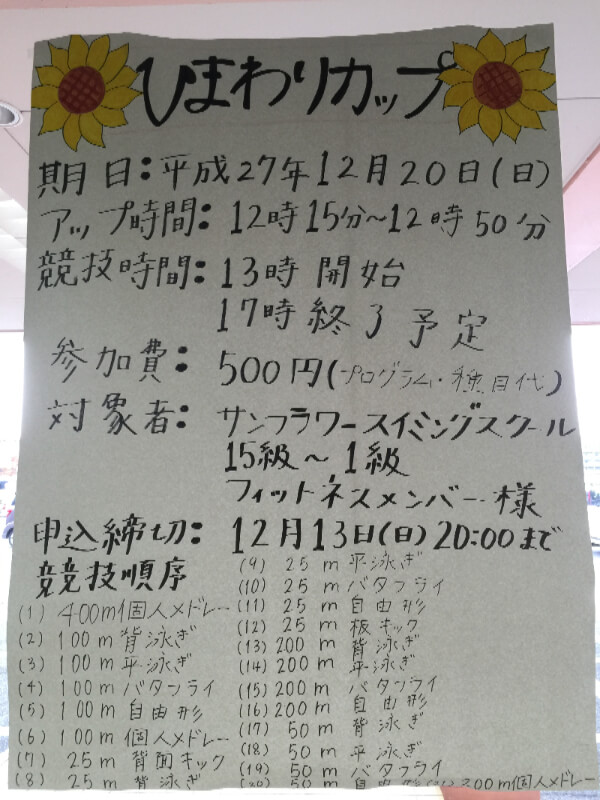 ひまわりカップ
期日:平成27年12月20日(日)
アップ時間:12時15分~12時50分
競技時間:13時開始
17時終了予定
参加費:500円(プログラム・種目代)
対象者:サンフラワースイミングスクール
15級~1級
フィットネスメンバー様
申込締切:12月13日(日)20:00まで
競技順序
(1) 400m個人メドレー
(2) 100m背泳ぎ
(3) 100m平泳ぎ
(4) 100mバタンライ
(5) 100m自由形
(6) 100m個人メドレー
(7) 25m背面キック
(8) 25m背泳ぎ
(9) 25m平泳ぎ
(10) 25mバタフライ
(11) 25m自由形
(12) 25m板キック
(13) 200m背泳ぎ
(14) 200m平泳ぎ
(15) 200mバタンライ
(16) 200m自由形
(17) 50m背泳ぎ
(18) 50m平泳ぎ
(19) 50mバタフライ
(20) 50m自由形(21)200m個人メドレー